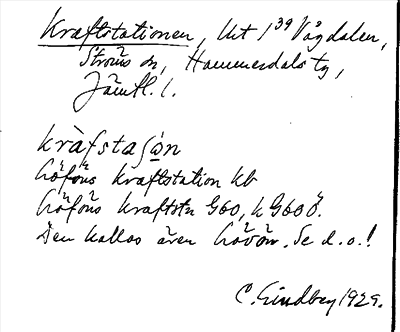 Kraftstationen, Ut 1 39 Vågdalen,
Ströms sn, Hammerdals tg,
Jämtl. l.
kràfstaʃo̱n
Lövöns kraftstation kb
Lövöns kraftstn G60, k G60 Ö.
Den kallas även Lövön. Se d.o.!
C. Lindberg 1929.